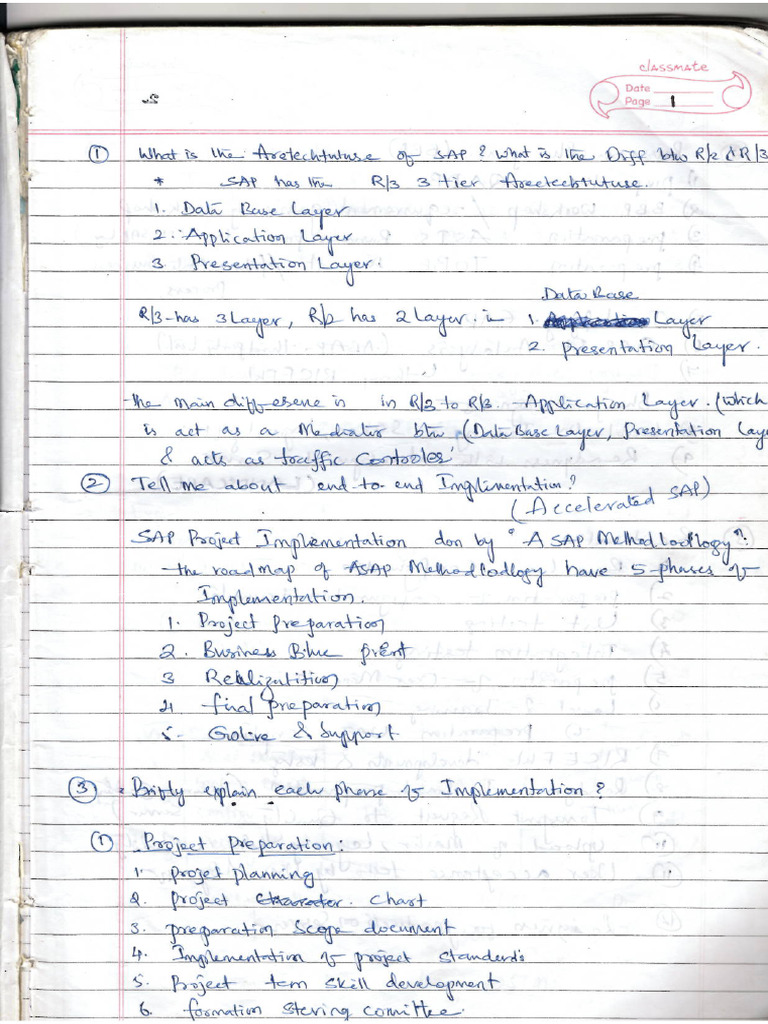 classmate
Date
Page 1
① What is the Aretechtutuse of SAP? What is the Diff btw R/2 & R/3
* SAP has the R/3 3 tier Areetechtutuse.
1. Data Base Layer
2. Application Layer
3 Presentation Layer.
Data Base
R/3-has 3 Layer, R/2 has 2 Layer. in 1. Layer
2. presentation Layer.
-The main differene is in R/2 to R/3. -Application Layer. (which
is act as a Mediator btw (Data Base Layer, Presentation Laye
& acts as traffic Controles'
② Tell me about end-to-end Implimentation?
(Accelerated SAP)
SAP Project Implementation don by "ASAP Methodlodlogy".
-the road map of ASAP Methodlodlogy have 5-phases of
Implementation.
1. Project preparation
2. Business Blue prent
3 Realizatition
4 final preparation
5- Golive & Support
③ Brifly explain each phase of Implementation?
① Project preparation:
1. projet planning
2. project chart
3. preparation scope document
4. Implementation of project standards
5. Project tem skill development
6. formation stering comittee.